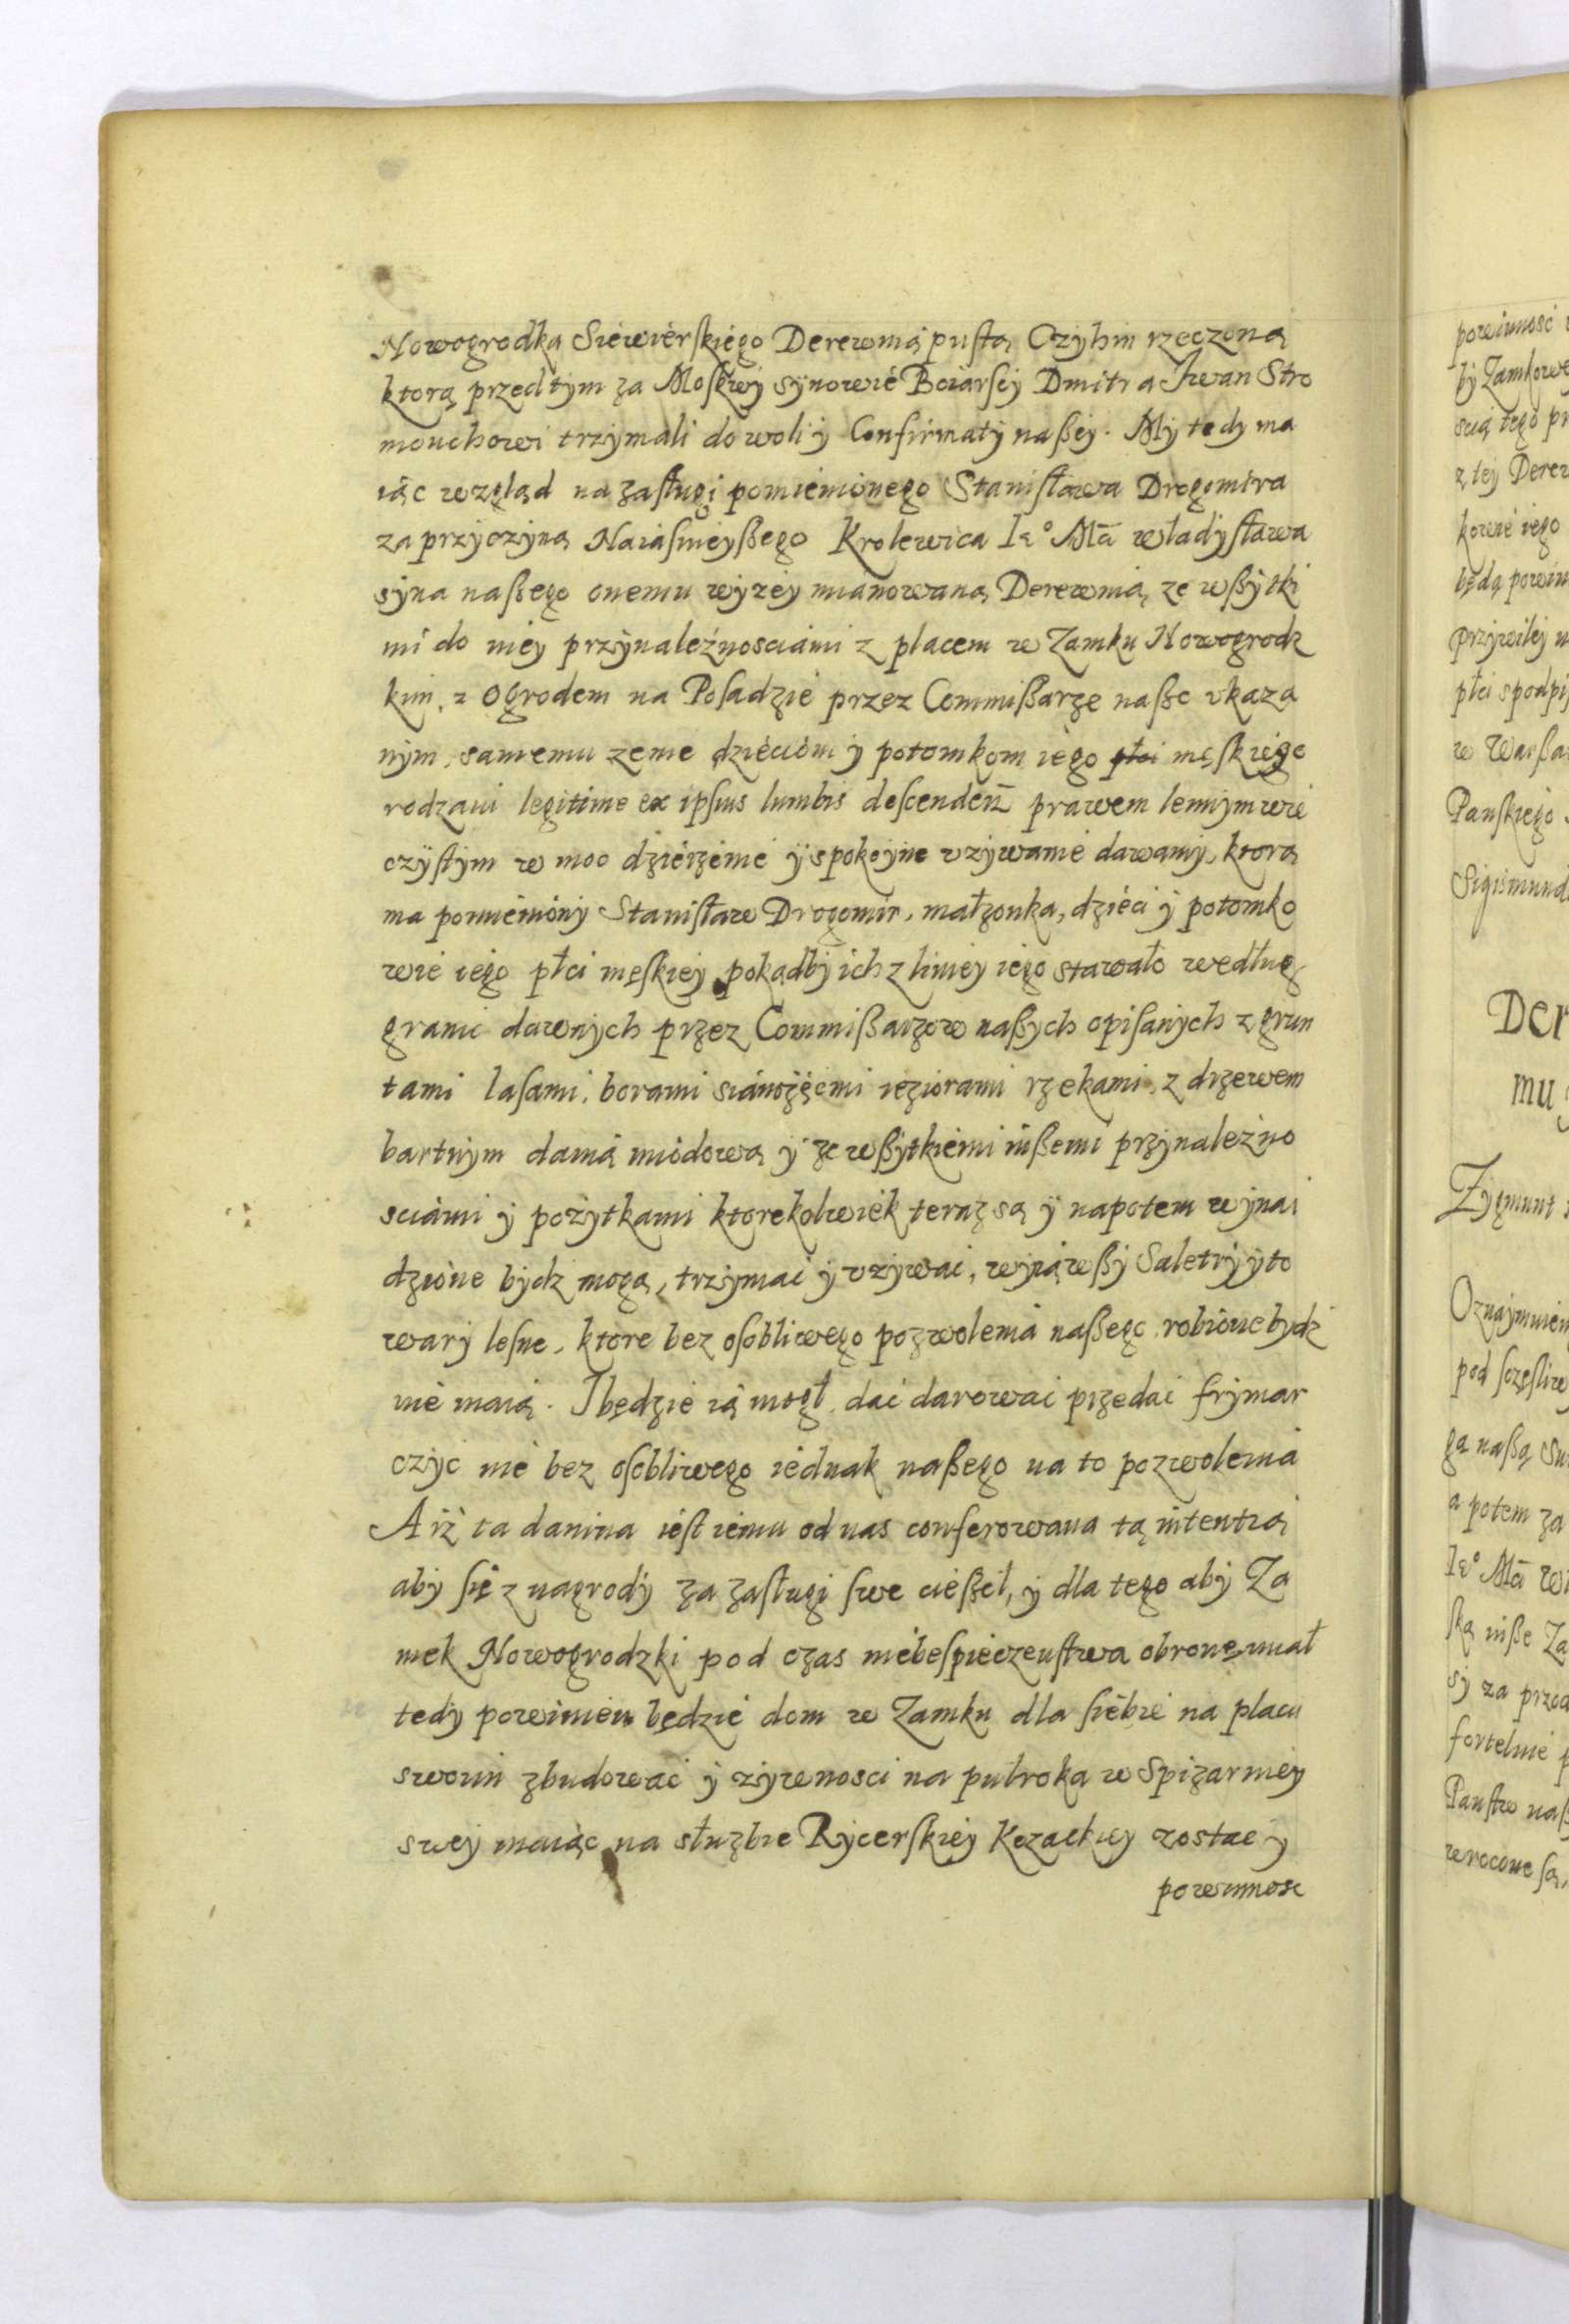 Nowogrodka Siewierskiego Derewnią pustą Czyhin rzeczoną
ktorą przed tym za Moskwy synowie Boiarscy Dmitr a Iwan Stro
mouchowi trzymali do woli y Confirmaty naßey. My tedy ma
iąc wzgląd na zasługi pomienionego Stanisława Drogomira
za przyczyną Naiaśnieyßego Krolewica Ie° Mći Władysława
syna naßego onemu wyzey mianowaną Derewnią ze wßytki
mi do niey przynależnosciami z placem w Zamku Nowogrodz
kim, z Ogrodem na Posadzie przez Commißarze naße vkaza
nym, samemu zenie dzieciom y potomkom iego płci męskiego
rodzaiu legitime ex ipsius lumbis descenden prawem lennym wie
czystym w moc dzierżenie y spokoyne vżywanie dawamy, ktorą
ma pomieniony Stanisław Drogomir, małżonka, dzieci y potomko
wie iego płci męskiey pokądby ich z liniey iego stawało według
granic dawnych przez Commißarzow naßych opisanych z grun
tami lasami, borami sianożęćmi ieziorami rzekami, z drzewem
bartnym danią miodową y ze wßytkiemi inßemi przynależno
sciami y pożytkami ktorekolwiek teraz są y napotem wynai
dzione bydz mogą, trzymać y vżywać, wyiąwßy Saletry y to
wary lesne, ktore bez osobliwego pozwolenia naßego robione bydz
nie maią. I będzie ią mogł dać darować przedać frymar
czyć nie bez osobliwego iednak naßego na to pozwolenia
A iż ta danina iest iemu od nas conferowana tą intentią
aby się z nagrody za zasługi swe cießeł, y dla tego aby Za
mek Nowogrodzki pod czas niebespieczenstwa obronę miał
tedy powinien będzie dom w Zamku dla siebie na placu
swoim zbudować y żywnosci na pułroka w Spiżarniey
swey maiąc na służbie Rycerskiey Kozackiey zostać y
powinnosc
powinność
by Zamkowe
scią tego
z tey
kowie iego
będą
przywiley
płci
w
Panskiego
Der
mu
Zygmunt
pod
ga naßą
a potem za
Ie° Mći
ską niße Za
sy za
fortelnie
Panstw
wrocone są,